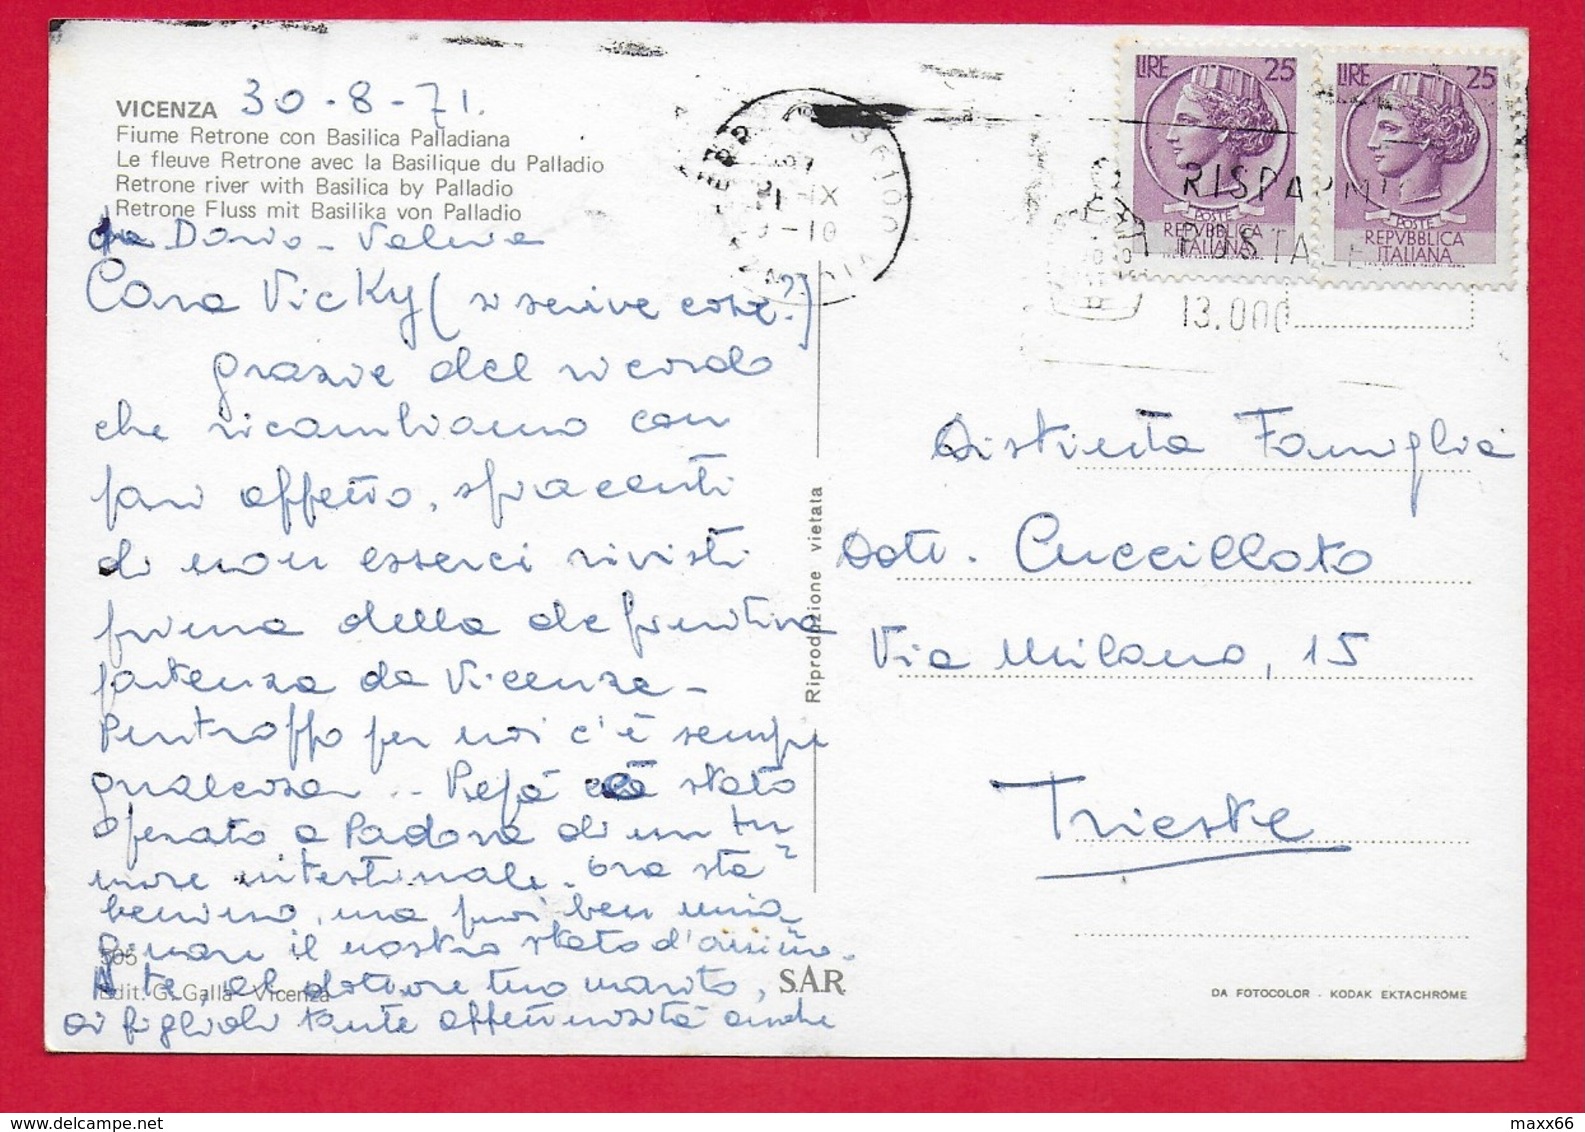 VICENZA 30-8-71.
Fiume Retrone con Basilica Palladiana
Le fleuve Retrone avec la Basilique du Palladio
Retrone river with Basilica by Palladio
Retrone Fluss mit Basilika von Palladio
da
Cara Vicky (si scrive così?)
grazie del ricordo
che ricambiamo con
pari affetto, spiacenti
di non esserci rivisti
prima della definitiva
partenza da Vicenza -
Purtroppo per noi c'è sempre
qualcosa .. è stato
operato a Padova di un tu
more intestinale. Ora sta
benino, ma puoi ben imma
ginare il nostro stato d'animo.
A te, al dottore tuo marito,
ai figlioli tante affettuosità anche
505
Edit. G. Galla - Vicenza
SAR
Riproduzione vietata
36100
IX
-10
LIRE 25
POSTE
REPVBBLICA
ITALIANA
LIRE 25
POSTE
REPVBBLICA
ITALIANA
RISPARMIO
POSTALE
13.000
Distinta Famiglia
Dott. Cuccillato
Via Milano, 15
Trieste
DA FOTOCOLOR - KODAK EKTACHROME
maxx66